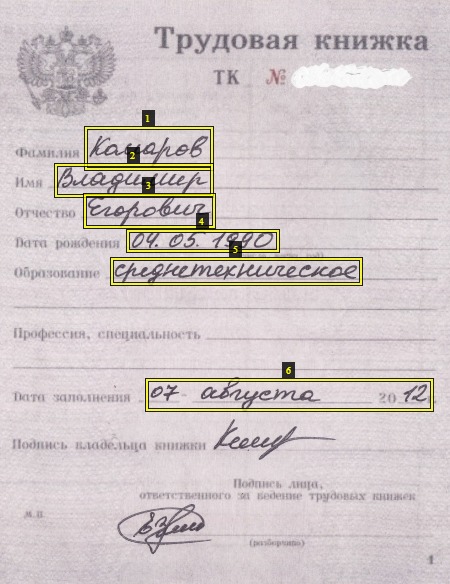 Трудовая книжка
ТК №
1
Фамилия Комаров
2
Имя Владимир
3
Отчество Егорович
4
Дата рождения 04.05.1990
5
Образование среднетехническое
Профессия, специальность
6
Дата заполнения 07 августа 2012
Подпись владельца книжки
Подпись лица,
ответственного за ведение трудовых книжек
м.п.
(разборчиво)
1